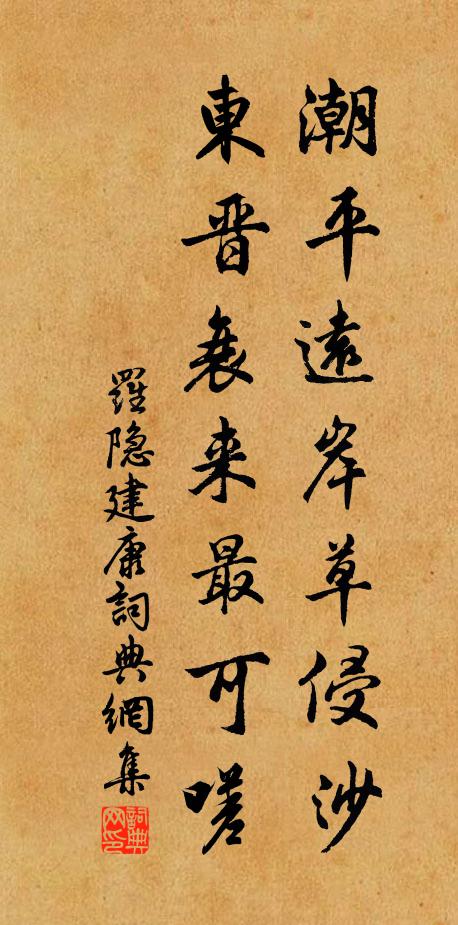 潮平遠岸草侵沙
東晋衰来最可嗟
羅隐建康詞典網集
詞典网印